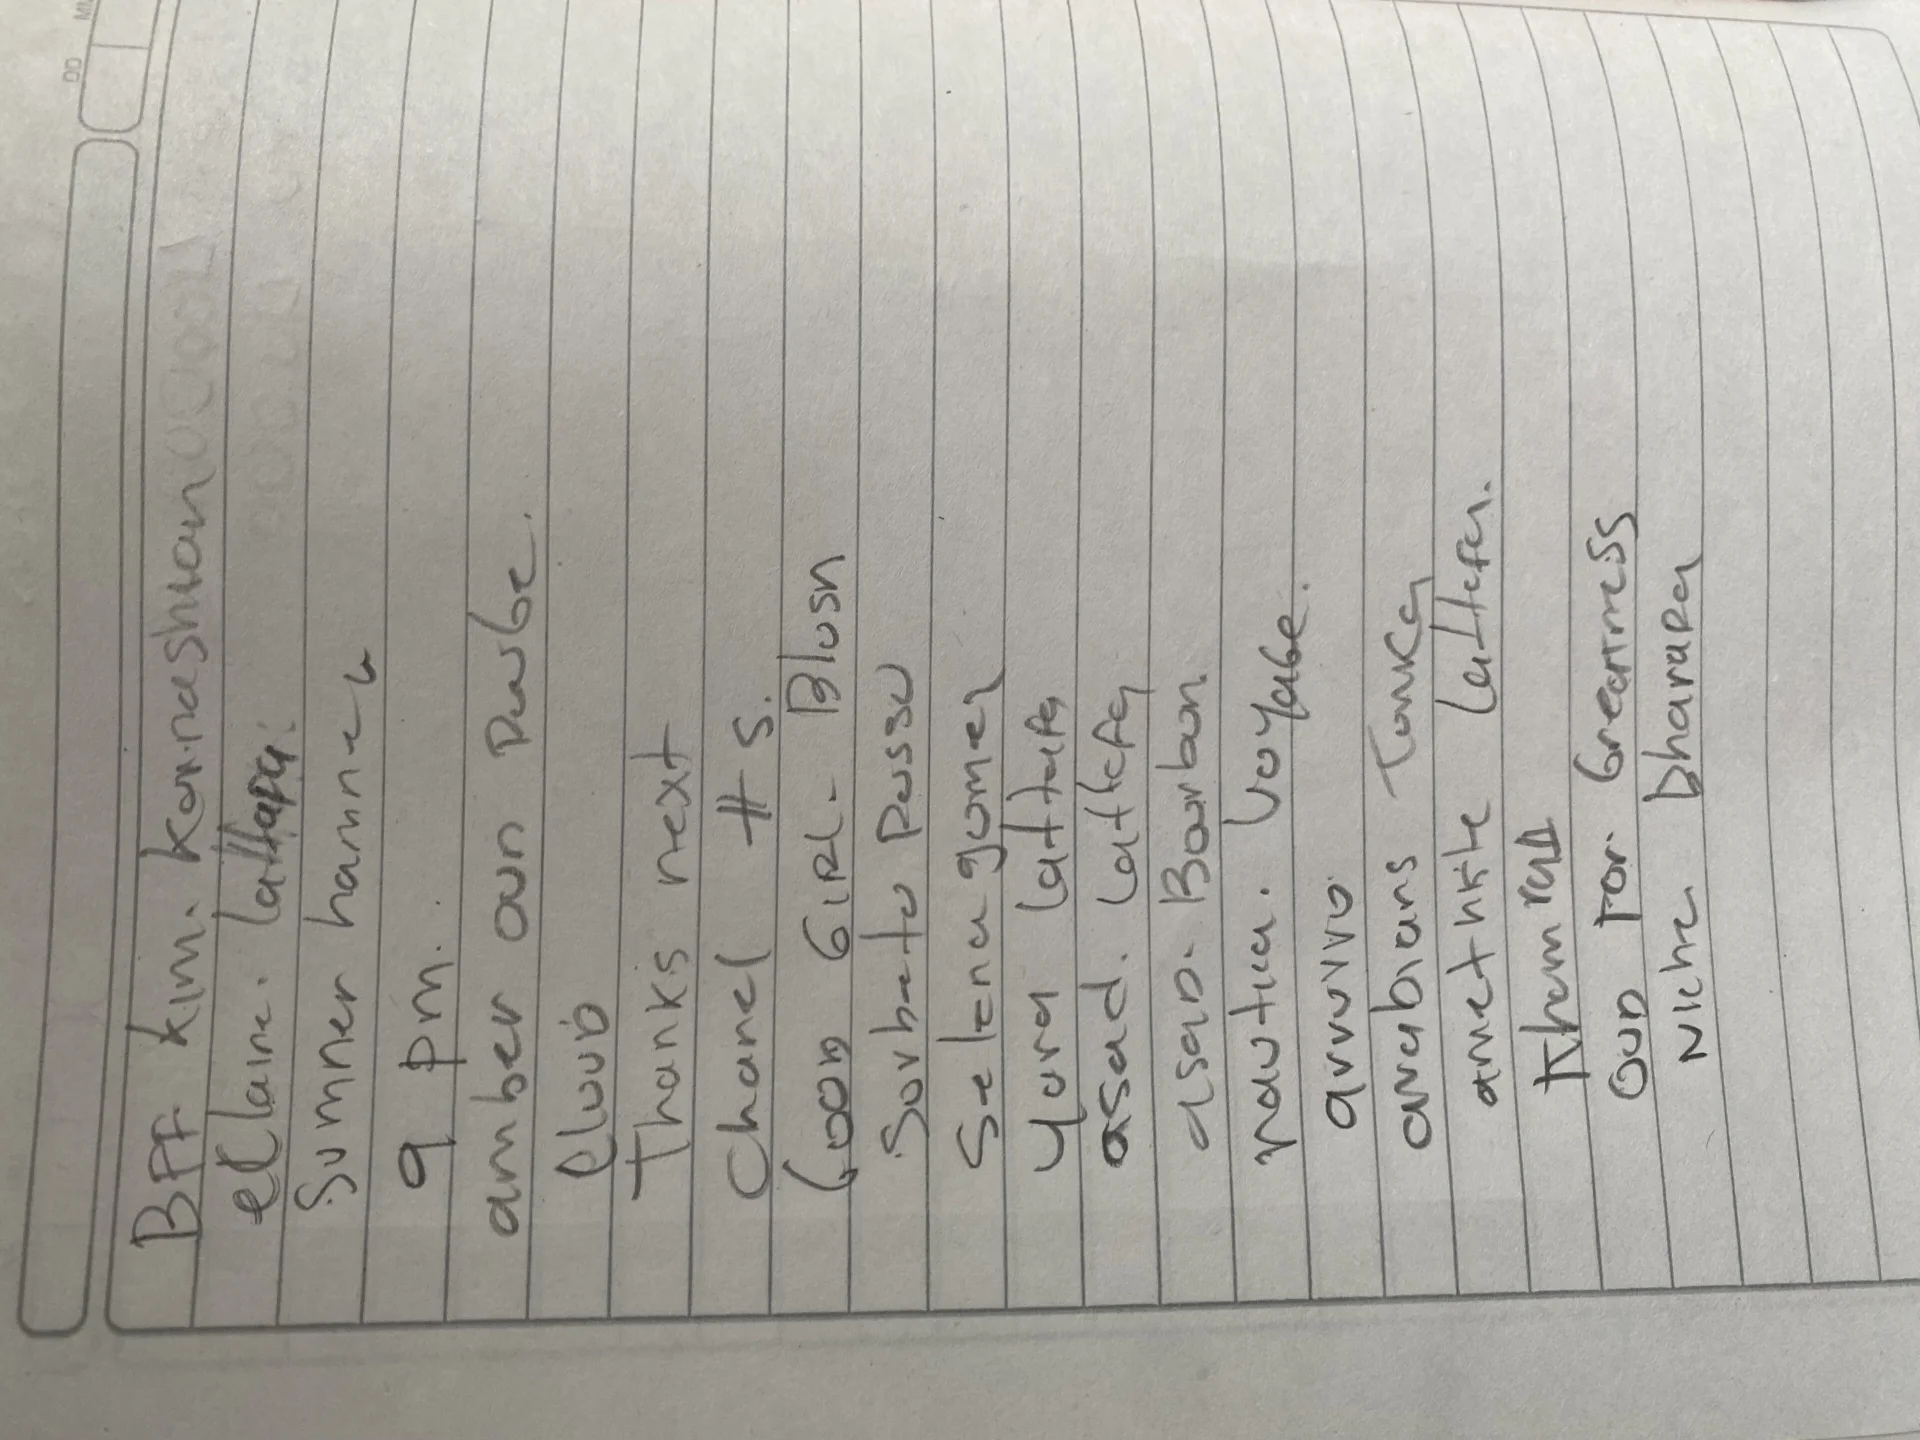 BFF Kim. Kardashian
eclaire. lattafa.
Summer hammer
9 pm.
amber oun Rouge.
Cloud
Thanks next
Chanel # 5.
Good GIRL. Blush
Sorbeto Rosso
Selena gomez
Yara lattafa
asad. Lattafa
asad. Bourbon
nautica. Voyage.
arabians Tonka
Lattafa.
Khamrah
OUD FOR Greatness
Niche
DD